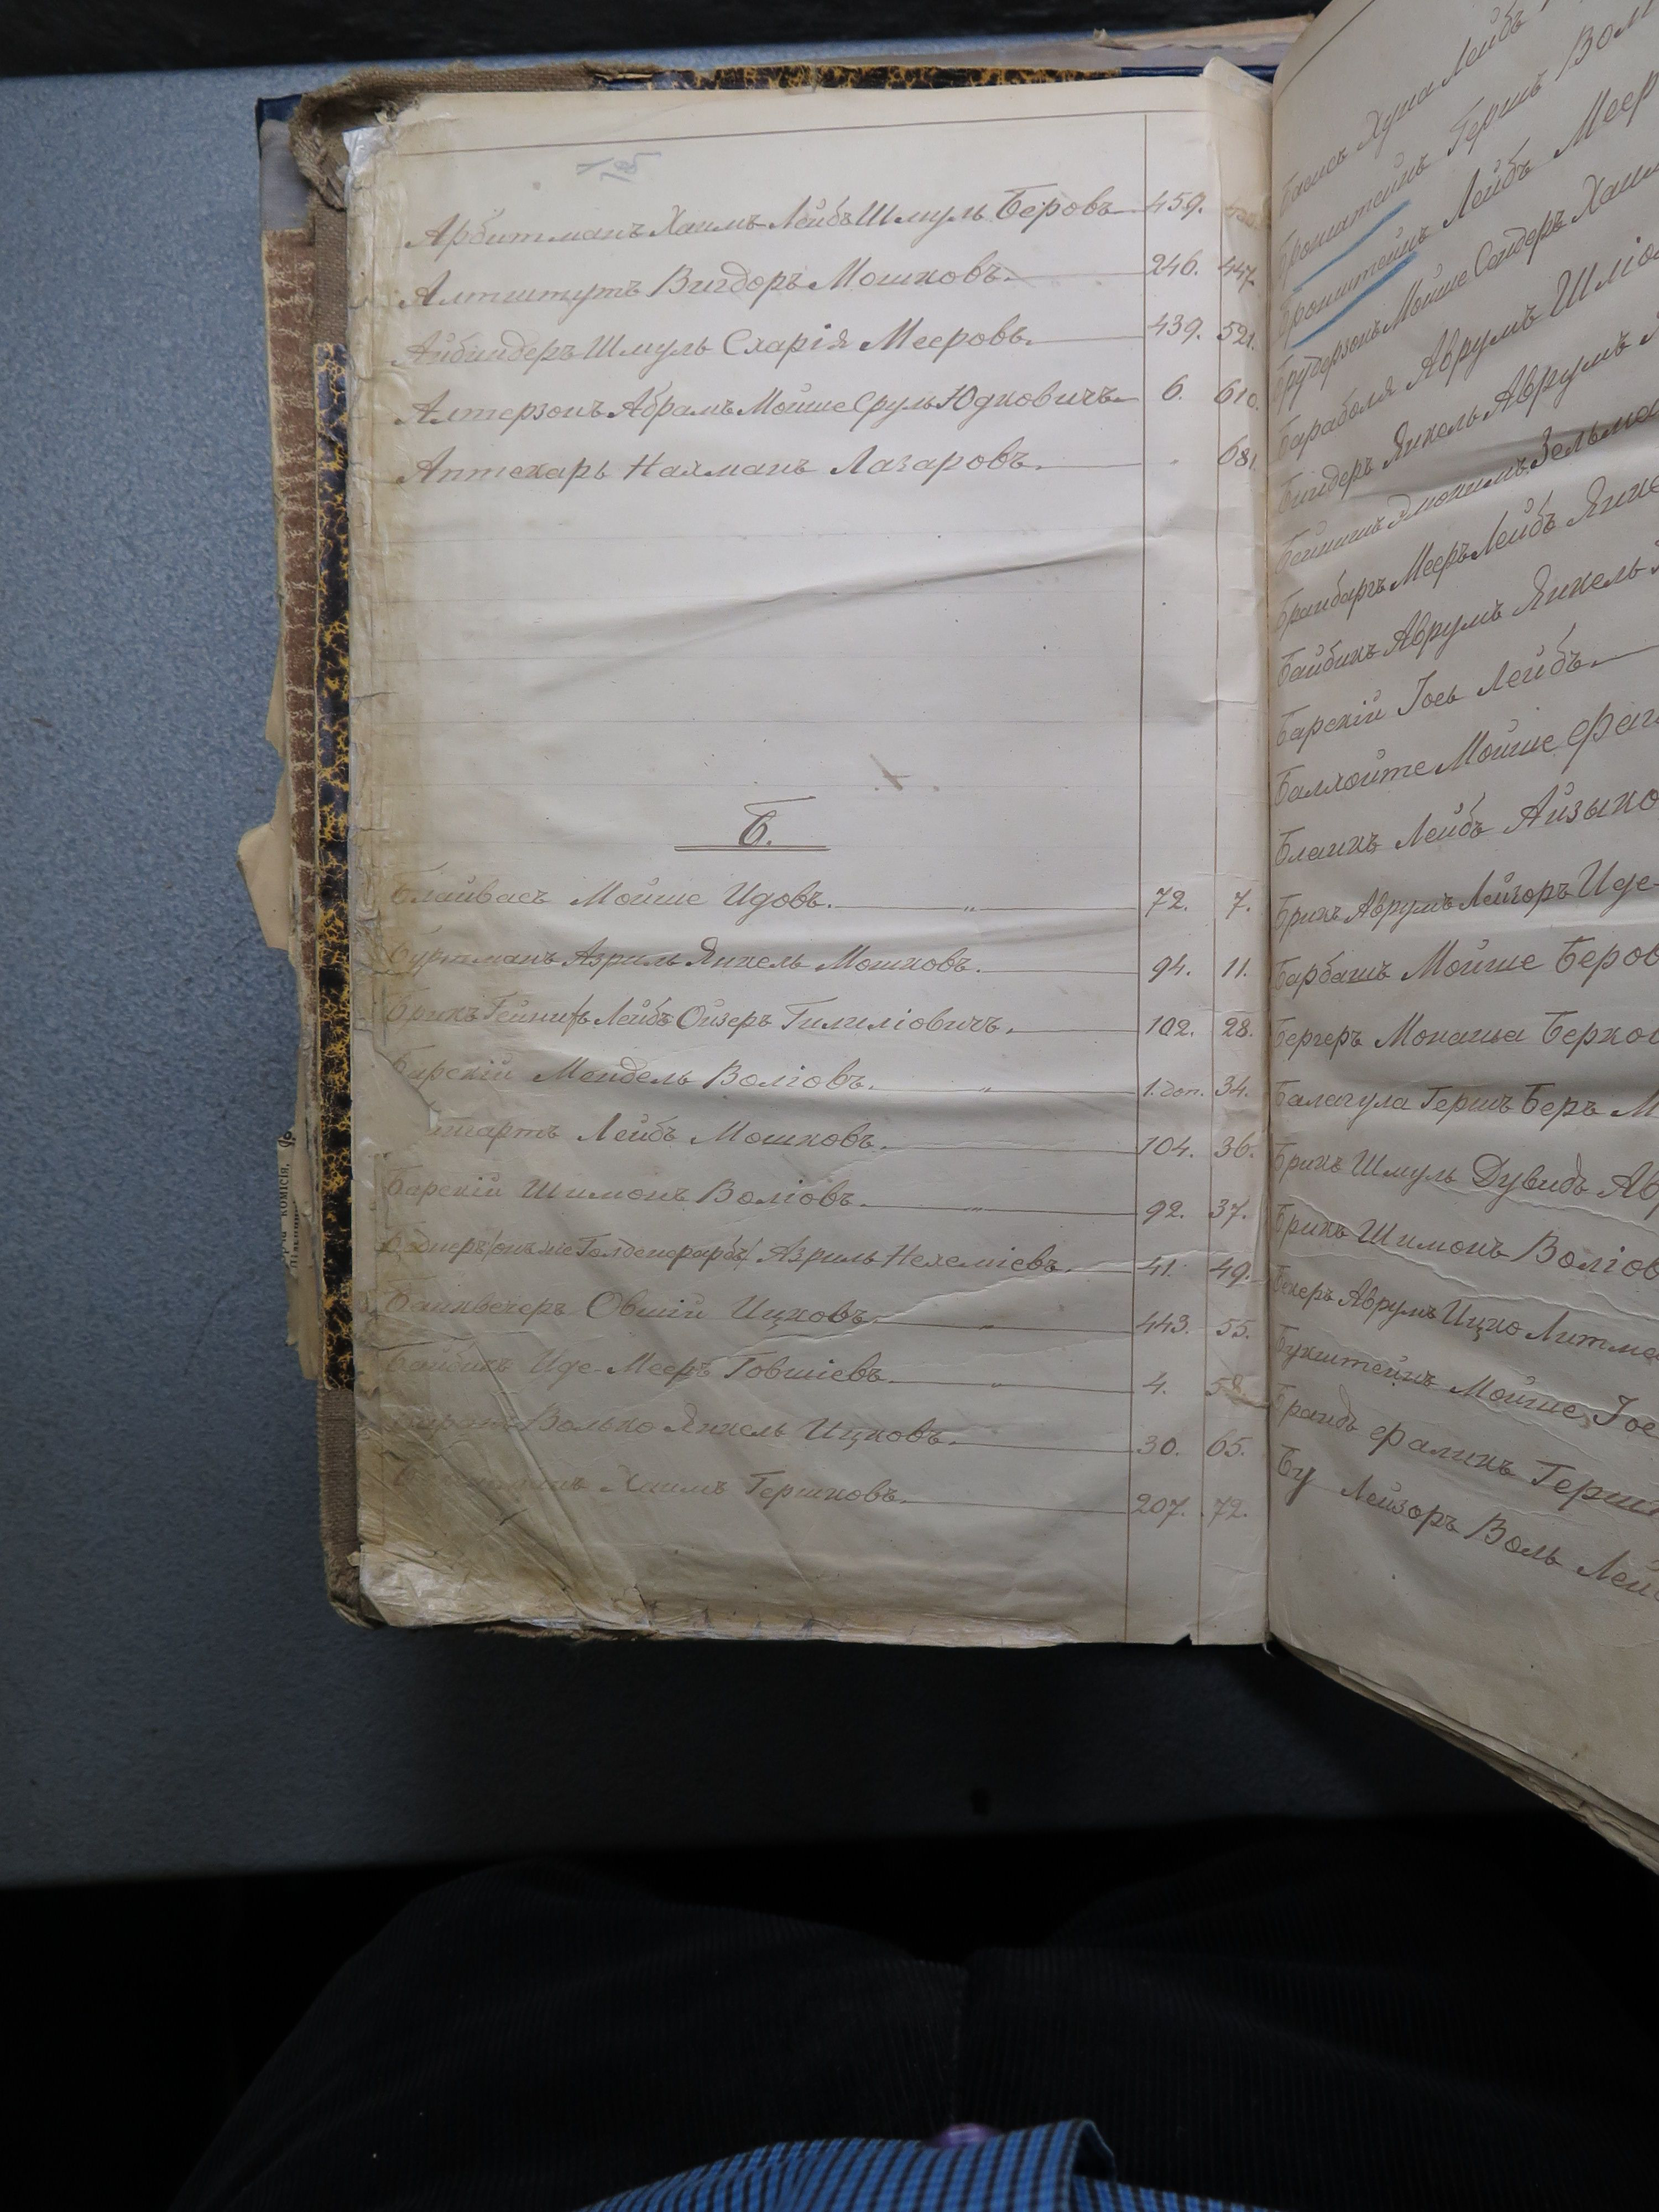 Арбитманъ Хаимъ Лейбъ Шмуль Беровъ 459.
Алтштутъ Вигдоръ Мошковъ. 246. 447.
Айбиндеръ Шмуль Схарія Мееровъ. 439. 521.
Алтерзонъ Абрамъ Мойше Сруль Юдковичъ 6. 610.
Аптекарь Нахманъ Лазаровъ. " 681.
Б.
Блайвасъ Мойше Идовъ. " 72. 7.
Бурманъ Азриль Янкель Мошковъ. 94. 11.
Брикъ Гейнихъ Лейбъ Ойзеръ Гилиліовичъ. 102. 28.
Барскій Мендель Воліовъ. " 1. доп. 34.
Лейбъ Мошковъ. 104. 36.
Барскій Шимонъ Воліовъ. " 92. 37.
Боднеръ (онъ же Голденфарбъ) Азриль Нехеміевъ. 41. 49.
Банквечеръ Овшій Ицковъ. " 443. 55.
Байбикъ Иде-Мееръ Говшіевъ. " 4. 58.
Волько Янкель Ицковъ. 30. 65.
Хаимъ Гершковъ. 207. 72.
Хуна Лейбъ
Бронштейнъ Гершъ Вол
Бронштейнъ Лейбъ Меер
Бругерзонъ Мойше Сендеръ Хаим
Бараболя Аврумъ Шліо
Биндеръ Янкель Аврумъ
Зельма
Мееръ Лейбъ Янке
Байбикъ Аврумъ Янкель
Барскій Іось Лейбъ.
Баллойте Мойше Фаг
Бланкъ Лейбъ Айзыко
Брикъ Аврумъ Лейзоръ Иде-
Барбашъ Мойше Беров
Бергеръ Монаша Берков
Балагула Гершъ Беръ М
Брикъ Шмуль Дувидъ Ав
Брикъ Шимонъ Воліов
Бекеръ Аврумъ Ицко Литма
Букштейнъ Мойше Іос
Брандъ Фаликъ Герш
Бу Лейзоръ Воль Лей